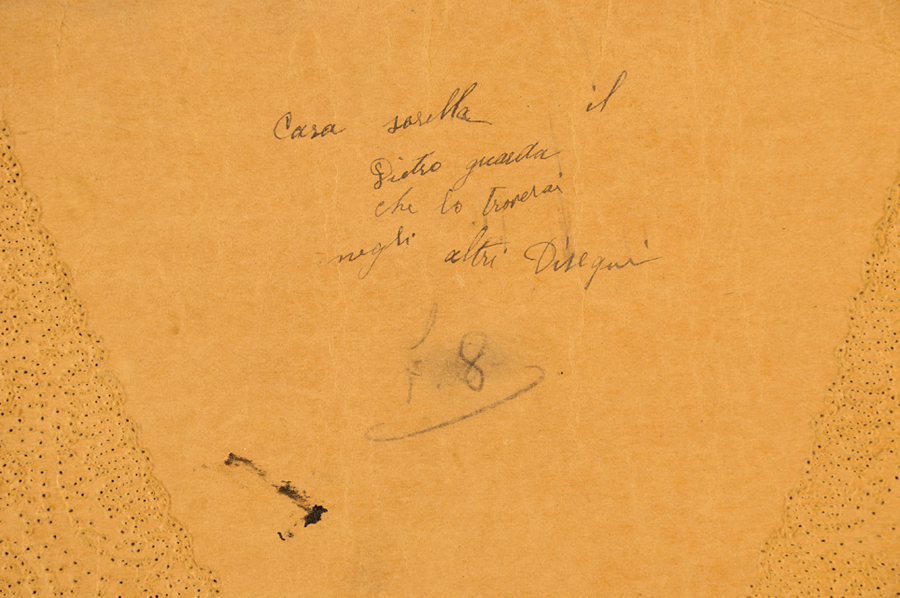 Cara sorella il
Dietro guarda
che lo troverai
negli altri Disegni
F. 8